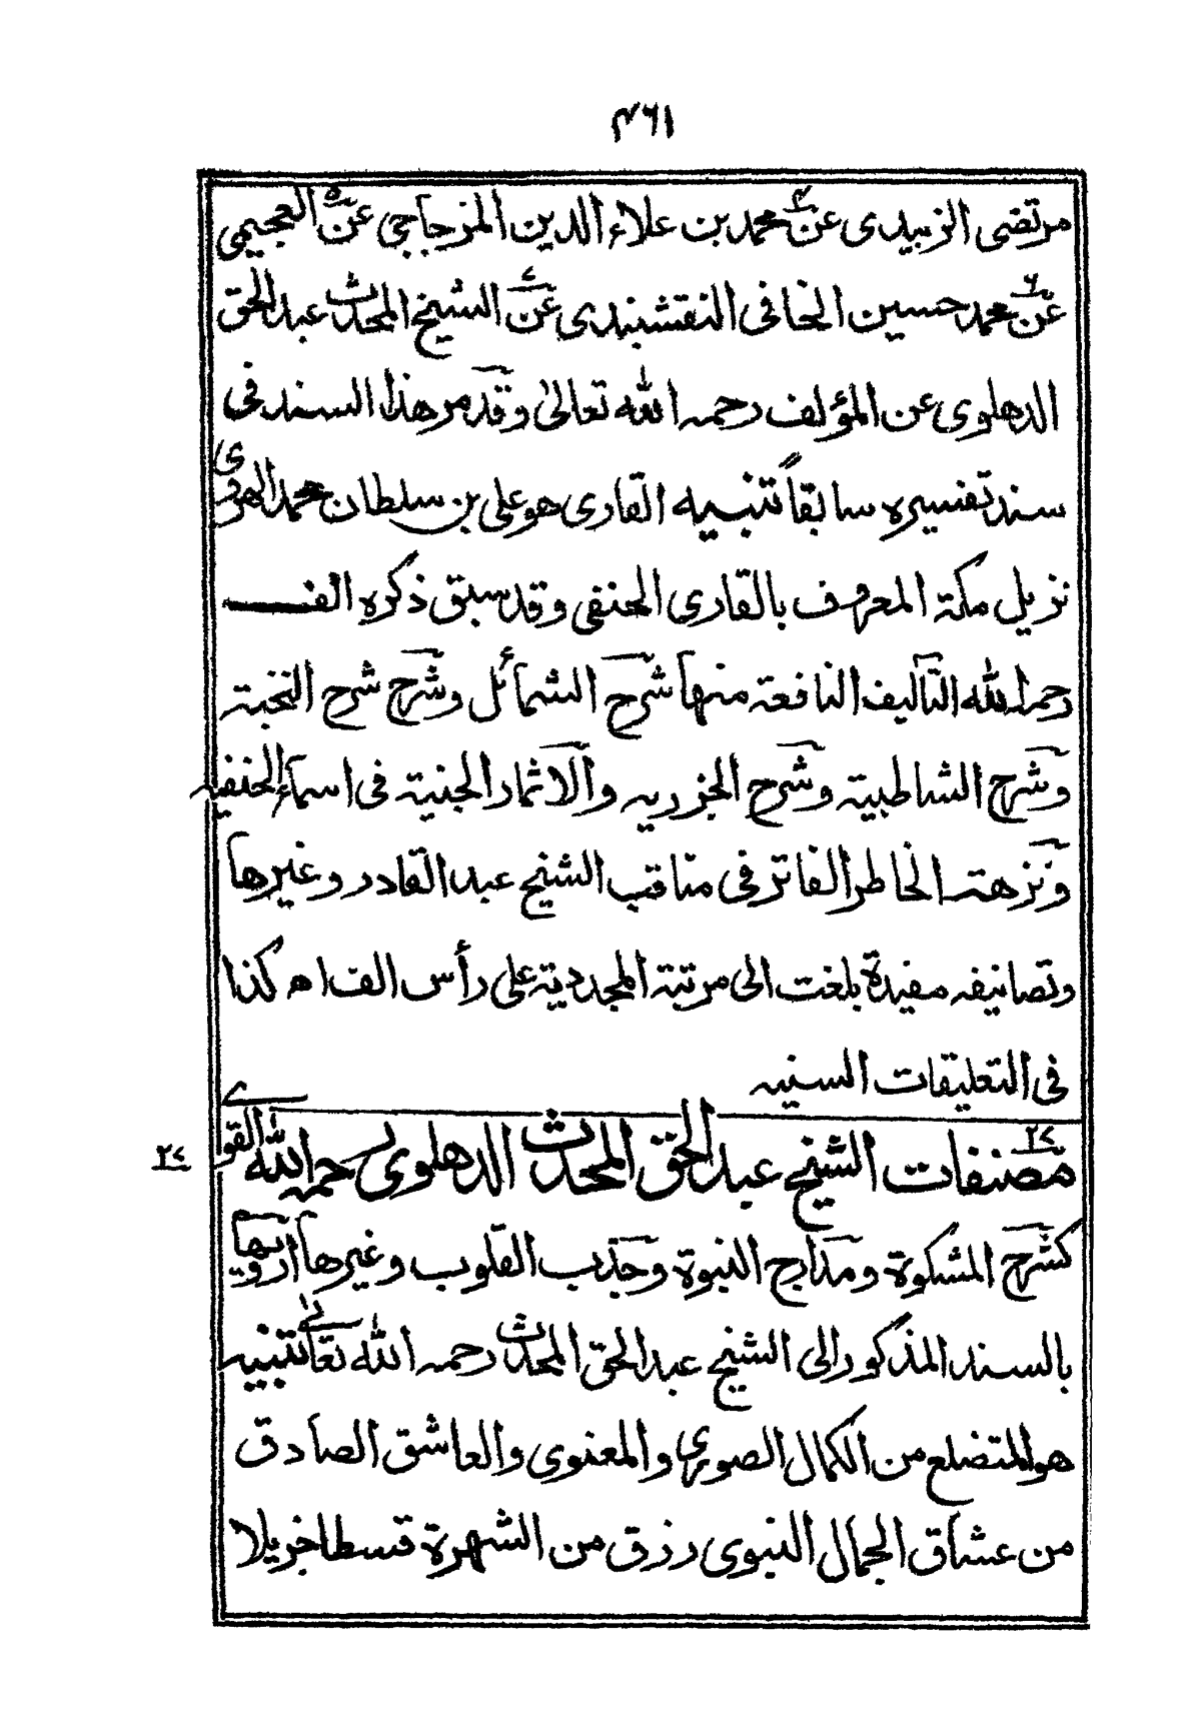 ۴۶۱
مرتضى الزبيدى عن ۴ محمد بن علاء الدين المزجاجي عن ۵ العجيمي
عن ۶ محمد حسين الخافى النقشبندى عن ۷ الشيخ المحدث عبد الحق
الدهلوى عن المؤلف رحمه الله تعالى وقد مر هذا السند فى
سند تفسيره سابقاً تنبيه القارى هو على بن سلطان محمد الهروى
نزيل مكة المعروف بالقارى الحنفى وقد سبق ذكره الف
رحمه الله التآليف النافعة منها شرح الشمائل وشرح شرح النخبة
وشرح الشاطبية وشرح الجزريه والاثمار الجنية فى اسماء الحنفيه
ونزهة الخاطر الفاتر فى مناقب الشيخ عبد القادر وغيرها
وتصانيفه مفيدة بلغت الى مرتبة المجددية على رأس الف اه كذا
فى التعليقات السنيه
۲۷
مصنفات ۲۷ الشيخ عبد الحق المحدث الدهلوى رحمه الله القوى
كشرح المشكوة ومدارج النبوة وجذب القلوب وغيرها ارويها
بالسند المذكور الى الشيخ عبد الحق المحدث رحمه الله تعالى تنبيه
هو المتضلع من الكمال الصورى والمعنوى والعاشق الصادق
من عشاق الجمال النبوى رزق من الشهرة قسطا خريلا